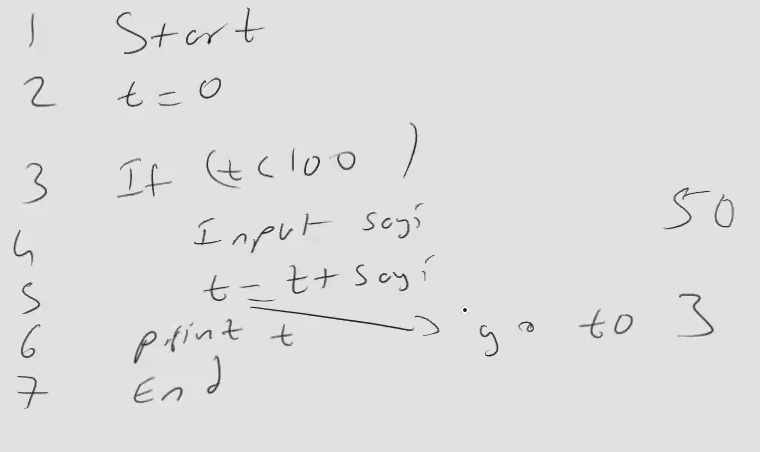 1 Start
2 t = 0
3 If (t < 100 )
4 Input sayi 50
5 t = t + sayi
go to 3
6 print t
7 End